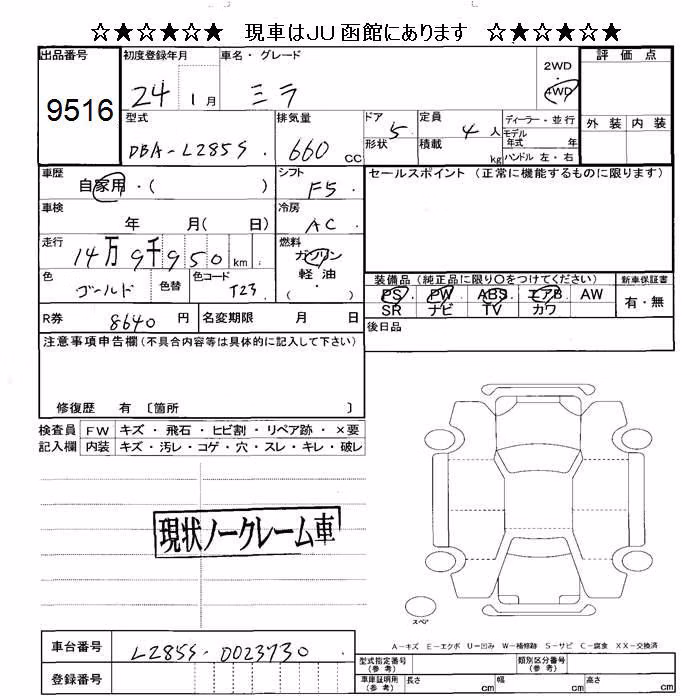 ☆★☆★☆★ 現車はJU函館にあります ☆★☆★☆★
出品番号 9516
初度登録年月 24 1月
車名・グレード ミラ
2WD
4WD
評価点
外装 内装
型式 DBA-L285S
排気量 660 CC
ドア 5
形状
定員 4 人
積載 kg
ディーラー・並行
モデル年式 年
ハンドル 左・右
車歴 自家用・( )
シフト F5
セールスポイント (正常に機能するものに限ります)
車検 年 月( 日)
冷房 AC
走行 14万9千950km
燃料 ガソリン・軽油・( )
色 ゴールド
色替
色コード T23
装備品 (純正品に限り○をつけてください)
PS・PW・ABS・エアB・AW
SR ナビ TV カワ
新車保証書
有・無
R券 8640 円
名変期限 月 日
後日品
注意事項申告欄(不具合内容等は具体的に記入して下さい)
修復歴 有 〔箇所 〕
検査員記入欄
FW キズ・飛石・ヒビ割・リペア跡・×要
内装 キズ・汚レ・コゲ・穴・スレ・キレ・破レ
現状ノークレーム車
スペア
A-キズ E-エクボ U-凹み W-補修跡 S-サビ C-腐食 XX-交換済
車台番号 L285S-0023730
登録番号
型式指定番号(参考)
類別区分番号(参考)
車庫証明用(参考) 長さ cm 幅 cm 高さ cm